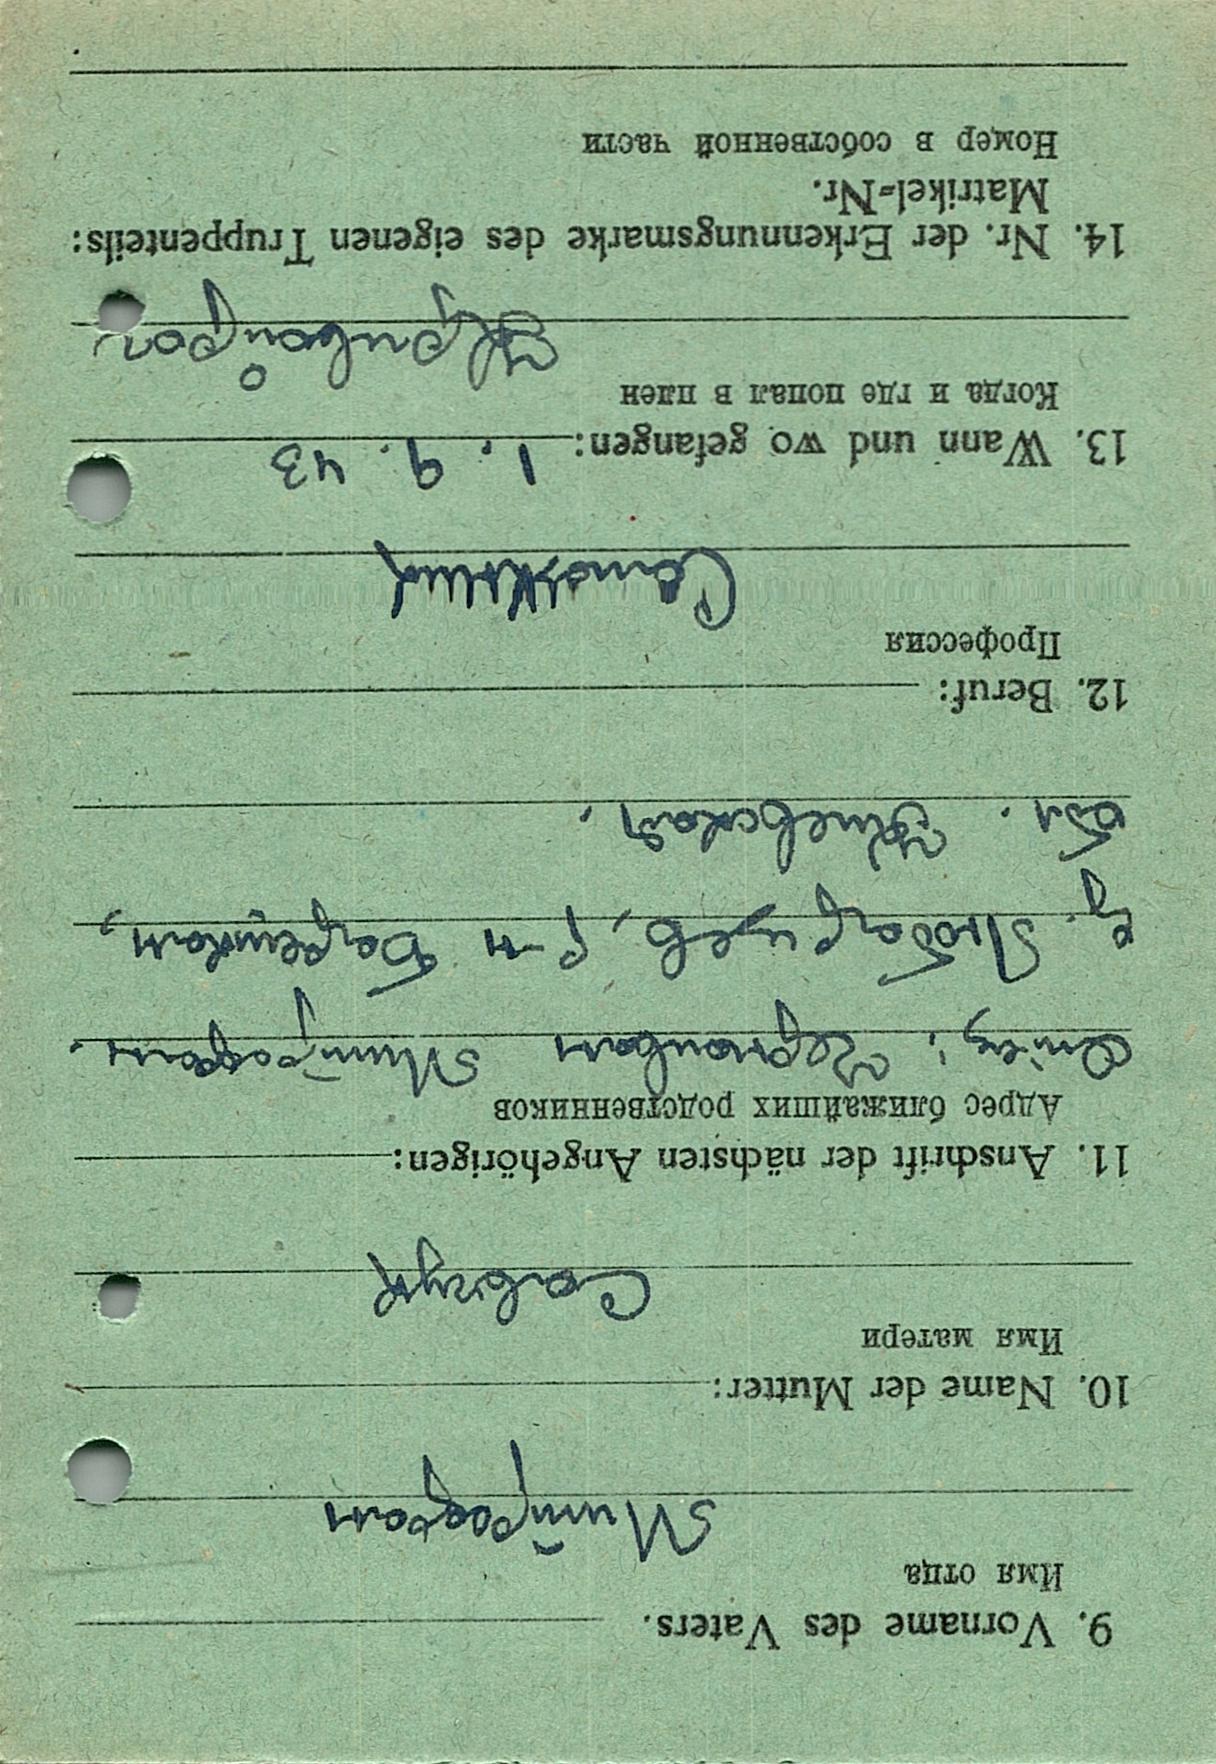 9. Vorname des Vaters.
Имя отца
Митрофан
10. Name der Mutter:
Имя матери
Савчук
11. Anschrift der nächsten Angehörigen:
Адрес ближайших родственников
Отец: Митрофан.
р-н
обл. Киевская.
12. Beruf:
Профессия
Сапожник
13. Wann und wo gefangen: 1. 9. 43
Когда и где попал в плен
14. Nr. der Erkennungsmarke des eigenen Truppenteils:
Matrikel-Nr.
Номер в собственной части